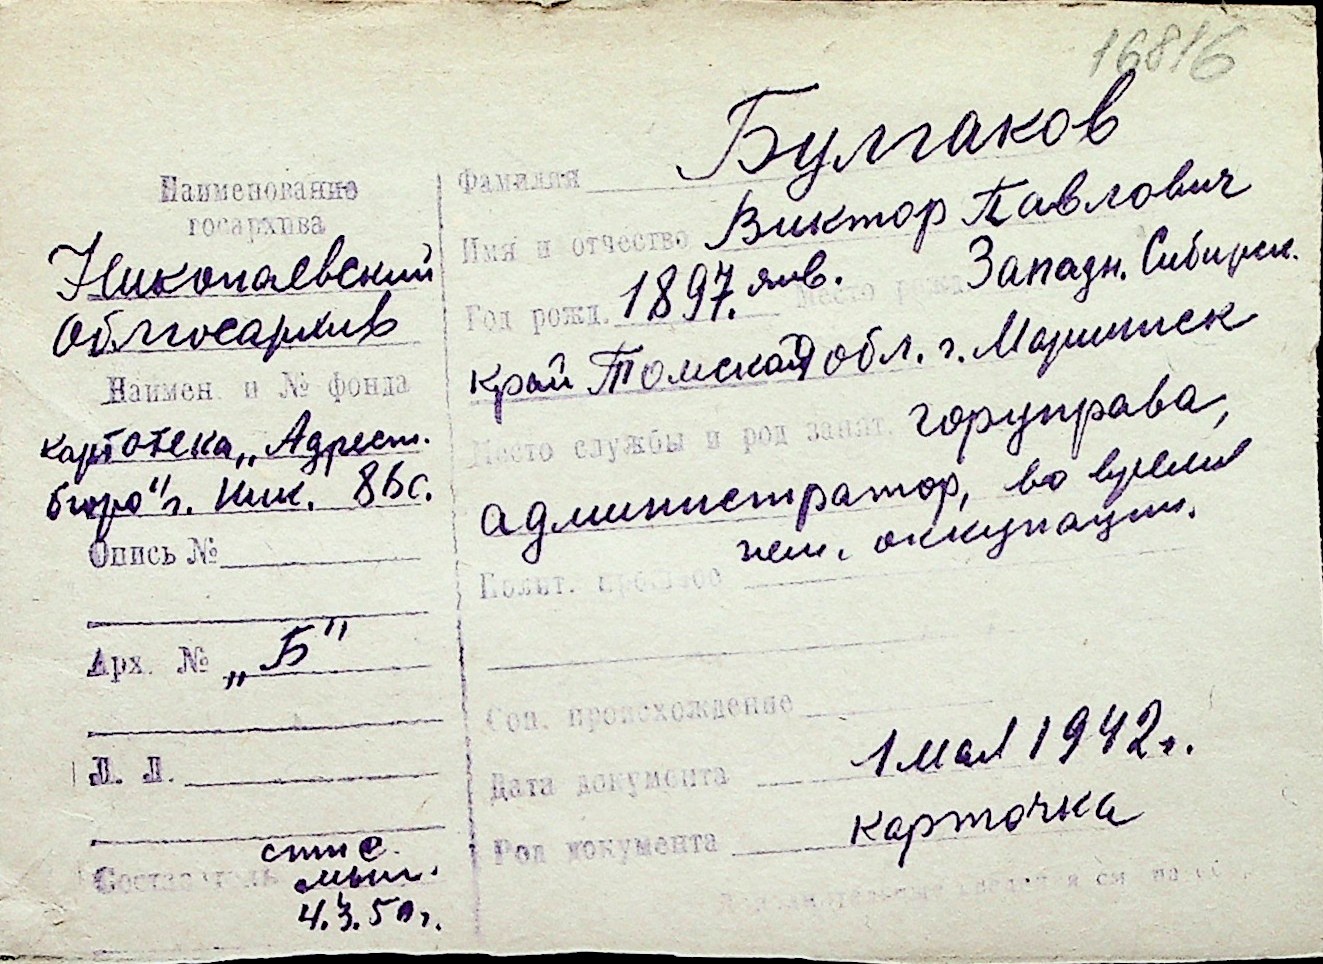 16816
Наименование
госархива
Николаевский
Облгосархив
Наимен. и № фонда
картотека „Адресн.
бюро" г. Ник.
Опись №
Арх. № „Б"
Л. Л.
Составитель
4.3.50 г.
Фамилия Булгаков
Имя и отчество Виктор Павлович
Год рожд. 1897. янв. Место рожд. Западн. Сибирск.
край Томская обл. г. Мариинск
Место службы и род занят. горуправа,
администратор, во время
нем. оккупации.
Полит. прошлое
Соц. происхождение
Дата документа 1 мая 1942 г.
Род документа карточка
Дополнительные сведения см. на об.